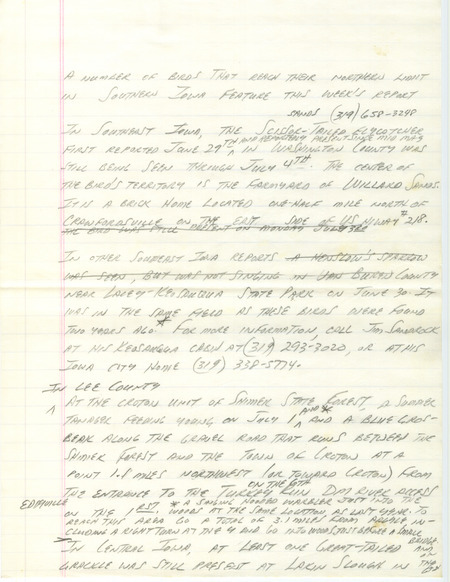 A NUMBER OF BIRDS THAT REACH THEIR NORTHERN LIMIT
IN SOUTHERN IOWA FEATURE THIS WEEK'S REPORT
SANDS (319) 658-3248
IN SOUTHEAST IOWA, THE SCISSOR-TAILED FLYCATCHER
FIRST REPORTED JUNE 29TH AND REPORTEDLY PRESENT SINCE MID MAY, IN WASHINGTON COUNTY WAS
STILL BEING SEEN THROUGH JULY 4TH. THE CENTER OF
THE BIRD'S TERRITORY IS THE FARMYARD OF WILLARD SANDS.
IT IS A BRICK HOME LOCATED ONE-HALF MILE NORTH OF
CRAWFORDSVILLE ON THE EAST SIDE OF US HIWAY #218.
THE BIRD WAS STILL PRESENT ON MONDAY JULY 3RD
IN OTHER SOUTHEAST IOWA REPORTS A HENSLOW'S SPARROW
WAS SEEN, BUT WAS NOT SINGING IN VAN BUREN COUNTY
NEAR LACEY-KEOSAUQUA STATE PARK ON JUNE 30. IT
WAS IN THE SAME FIELD AS THESE BIRDS WERE FOUND
TWO YEARS AGO.* FOR MORE INFORMATION, CALL JIM SANDROCK
AT HIS KEOSAUQUA CABIN AT (319) 293-3020, OR AT HIS
IOWA CITY HOME (319) 338-5774.
IN LEE COUNTY
^ AT THE CROTON UNIT OF SHIMEK STATE FOREST, A SUMMER
TANAGER FEEDING YOUNG ON JULY 1, AND * AND A BLUE GROS-
BEAK ALONG THE GRAVEL ROAD THAT RUNS BETWEEN THE
SHIMEK FOREST AND THE TOWN OF CROTON AT A
POINT 1.8 MILES NORTHWEST (OR TOWARD CROTON) FROM
THE ENTRANCE TO THE TURKEY RUN DM RIVER ACCESS
ON THE 1ST. * A SINGING HOODED WARBLER JUST INTO THE
WOODS AT THE SAME LOCATION, AS LAST YEAR. TO
REACH THIS AREA GO A TOTAL OF 3.1 MILES FROM IN-
CLUDING A RIGHT TURN AT THE Y AND GO INTO WOODS JUST BEFORE A SMALL BRIDGE.
IN CENTRAL IOWA, AT LEAST ONE GREAT-TAILED
GRACKLE WAS STILL PRESENT AT LAKIN SLOUGH IN